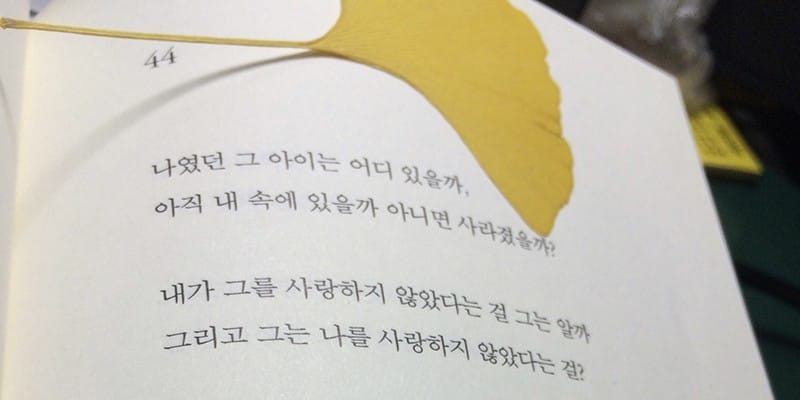 44
나였던 그 아이는 어디 있을까,
아직 내 속에 있을까 아니면 사라졌을까?
내가 그를 사랑하지 않았다는 걸 그는 알까
그리고 그는 나를 사랑하지 않았다는 걸?